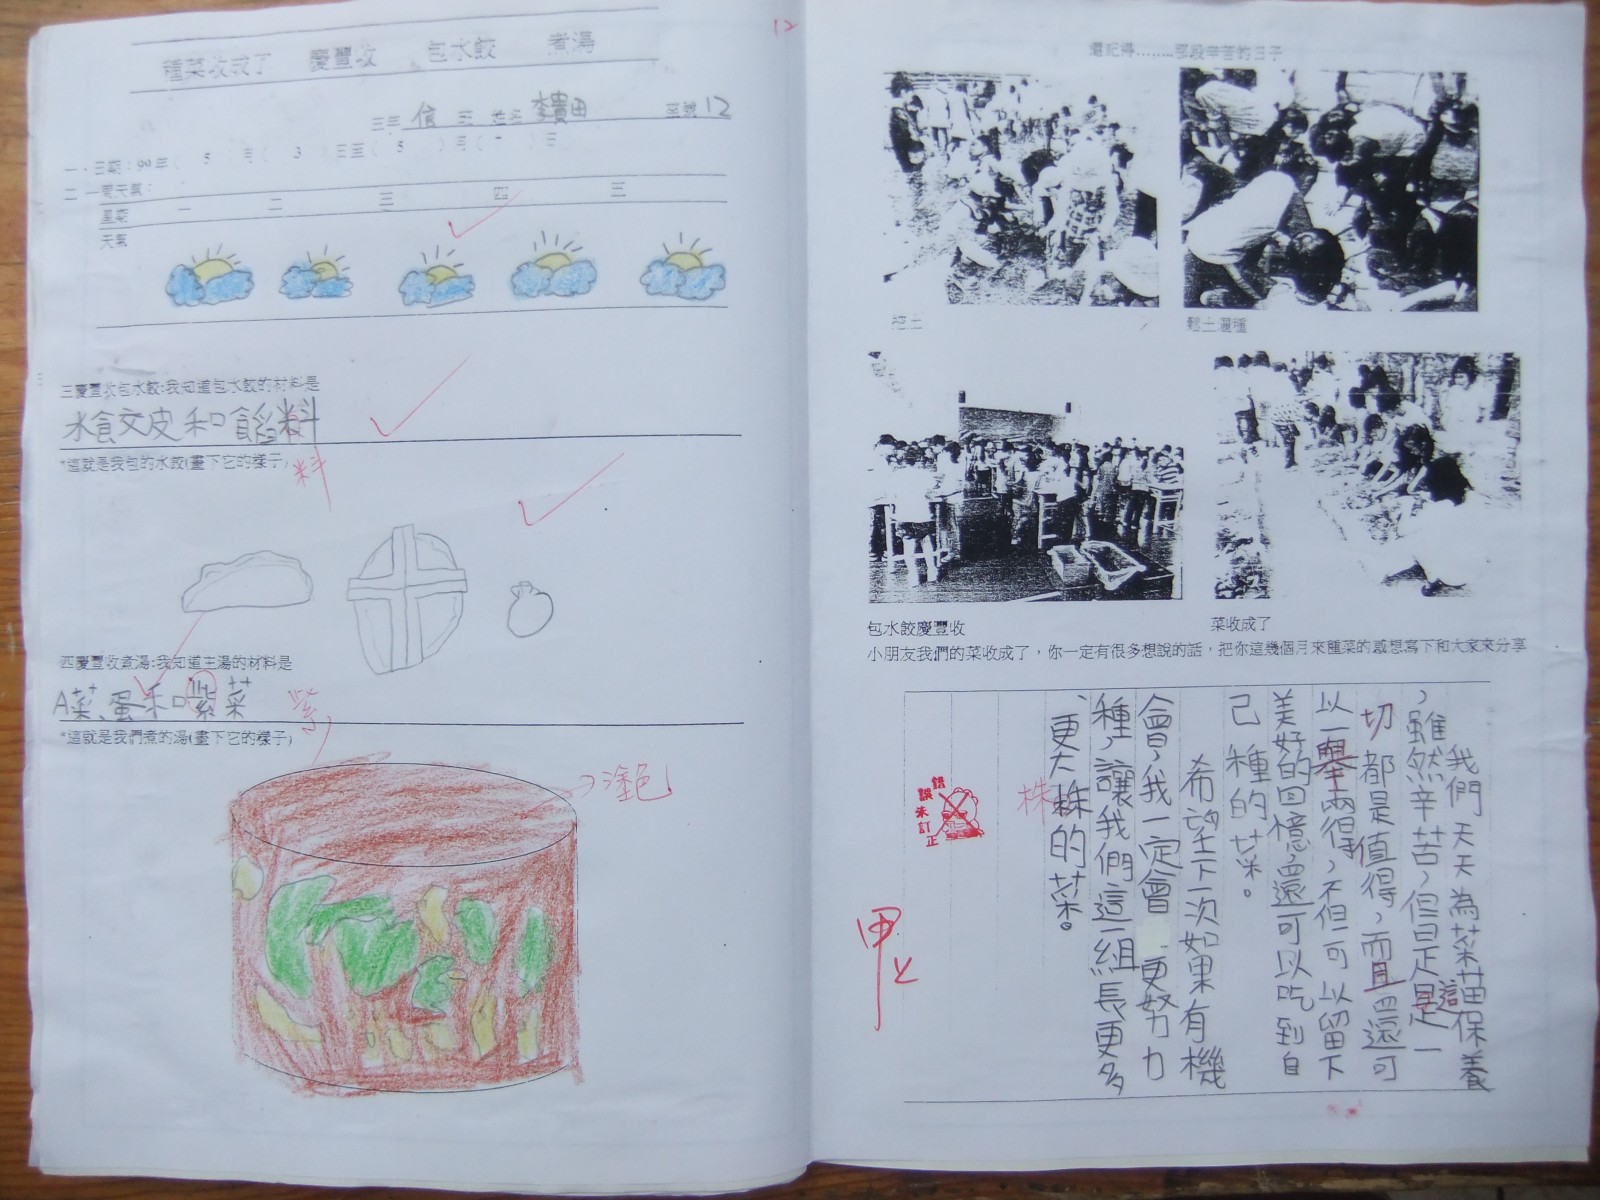 種菜收成了 慶豐收 包水餃 煮湯
三年 信 班 姓名 座號 12
一、日期:99年( 5 月( 3 )日至( 5 )月( 7 )日
二 一周天氣:
星期 一 二 三 四 三
天氣
三慶豐收包水餃:我知道包水餃的材料是
水餃皮和餡料
*這就是我包的水餃(畫下它的樣子)
料
四慶豐收煮湯:我知道主湯的材料是
A菜、蛋和紫菜
紫
*這就是我們煮的湯(畫下它的樣子)
塗色
12
還記得........那段辛苦的日子
挖土
鬆土灑種
包水餃慶豐收
菜收成了
小朋友我們的菜收成了，你一定有很多想說的話，把你這幾個月來種菜的感想寫下和大家來分享
我們天天為菜苗保養
，雖然辛苦，但是這是一
切都是值得，而且還可
以一舉兩得，不但可以留下
美好的回憶，還可以吃到自
己種的菜。
希望下一次如果有機
會，我一定會更努力
種，讓我們這一組長更多
、更大株的菜。
株
錯誤未訂正
甲上